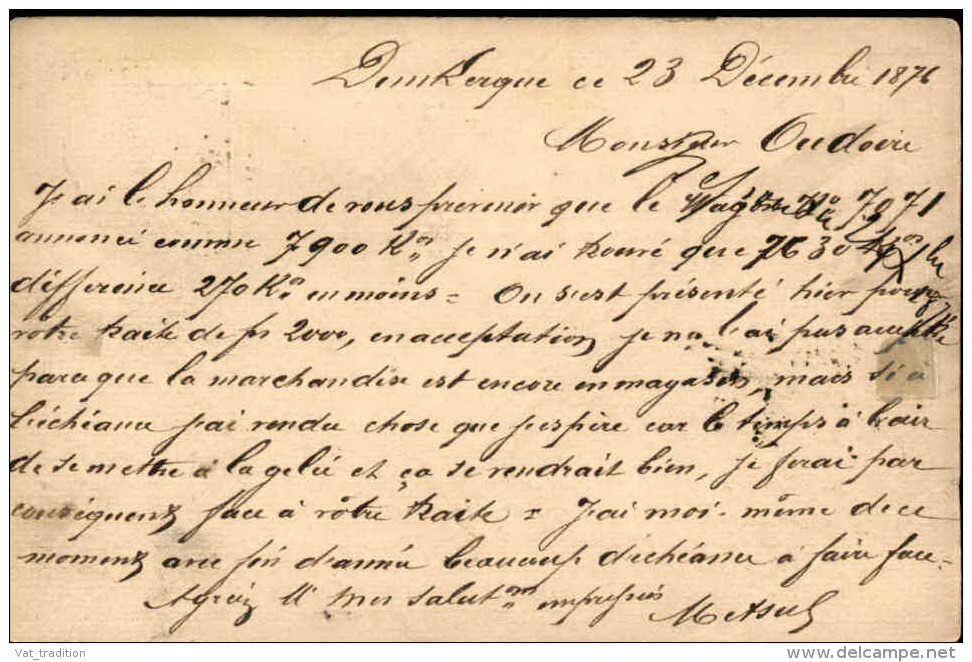 Dunkerque ce 23 Décembre 1876
Monsieur Oudoire
J'ai le honneur de vous prevenir que le Wagon No 7071
annoncé comme 7900 Kos je n'ai trouvé que 7630 Kos
différence 270 Kos en moins = On s'est présenté hier pour
vôtre traite de fr 2000, en acceptation, je ne l'ai pas accepté
parce que la marchandise est encore en magasin, mais si à
l'échéance j'ai rendu chose que j'espère car le temps à l'air
de se mettre à la gelée et ça se vendrait bien, je ferai par
conséquent face à vôtre traite = J'ai moi-même de ce
moment avec fin d'année beaucoup d'échéance à faire face =
Agréez M mes salutons empressés
Vat_tradition
www.delcampe.net